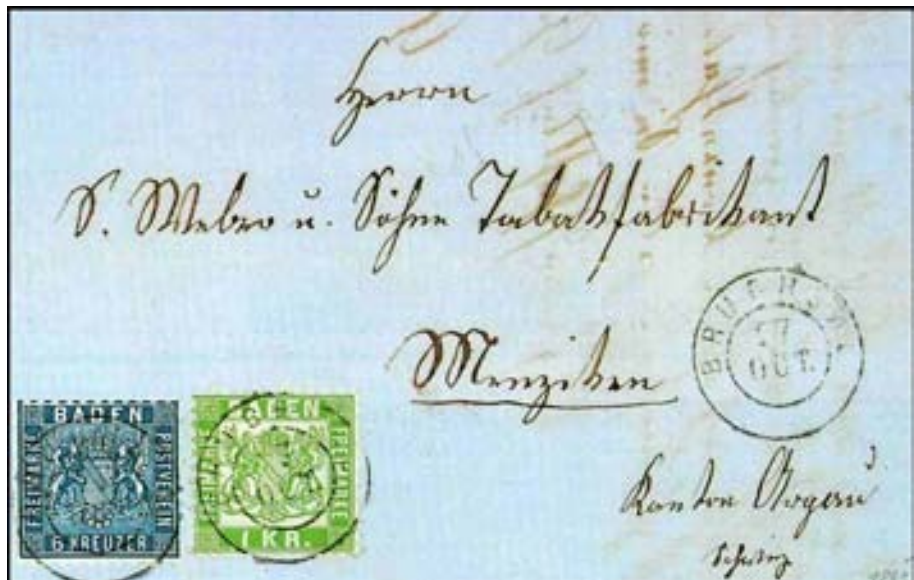 Herrn
S. Weber u. Söhne Tabakfabrikant
Menziken
BRUCHSAL
27
OCT.
Kanton Aargau
Schweiz
BADEN
FREIMARKE
POSTVEREIN
6 KREUZER
BADEN
FREIMARKE
1 KR.